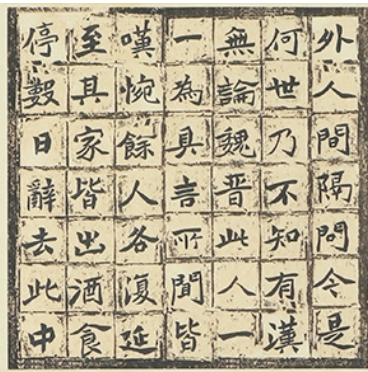 外人間隔問今是
何世乃不知有漢
無論魏晉此人一
一為具言所聞皆
嘆惋餘人各復延
至其家皆出酒食
停數日辭去此中